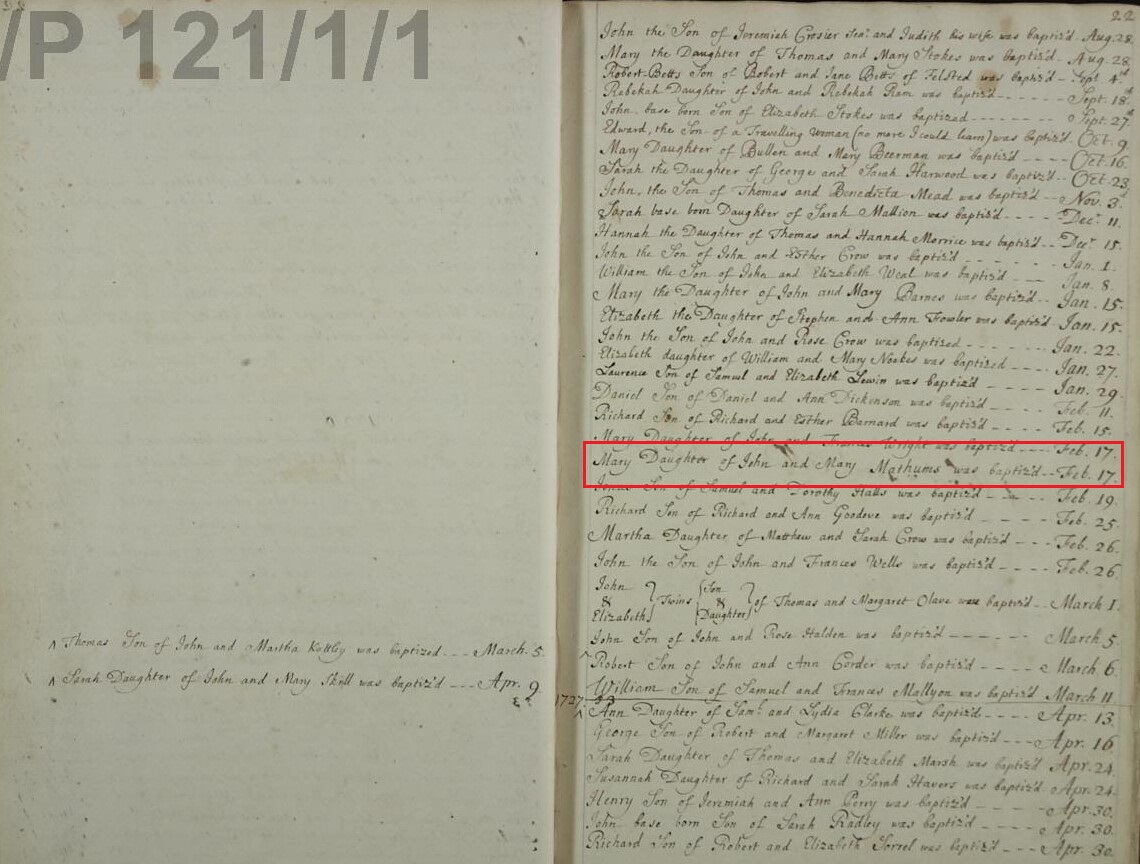 /P 121/1/1
22
John the Son of Jeremiah Crosier Senr. and Judith his wife was baptiz'd Aug. 28.
Mary the Daughter of Thomas and Mary Stokes was baptiz'd - Aug. 28
Robert-Betts Son of Robert and Jane Betts of Felsted was baptiz'd - Sept. 4th
Rebekah Daughter of John and Rebekah Ram was baptiz'd - - - - - - Sept. 18th
John base born Son of Elizabeth Stokes was baptized - - - - - - - Sept. 27th
Edward, the Son of a Travelling Woman (no more I could learn) was baptiz'd. Oct. 9
Mary Daughter of Bullen and Mary Beerman was baptiz'd - - - - Oct. 16.
Sarah the Daughter of George and Sarah Harwood was baptiz'd - - Oct. 23
John, the Son of Thomas and Benedicta Mead was baptiz'd - - Nov. 3d
Sarah base born Daughter of Sarah Mallion was baptiz'd - - - - Decr. 11.
Hannah the Daughter of Thomas and Hannah Morrice was baptiz'd - - Decr. 15.
John the Son of John and Esther Crow was baptiz'd - - - - - - - Jan. 1.
William the Son of John and Elizabeth Weal was baptiz'd - - - Jan. 8.
Mary the Daughter of John and Mary Barnes was baptiz'd - - Jan. 15.
Elizabeth the Daughter of Stephen and Ann Fowler was baptiz'd - Jan. 15.
John the Son of John and Rose Crow was baptized - - - - - Jan. 22.
Elizabeth daughter of William and Mary Noakes was baptized - - - - Jan. 27.
Laurence Son of Samuel and Elizabeth Lewin was baptiz'd - - - - Jan. 29.
Daniel Son of Daniel and Ann Dickenson was baptiz'd - - - - Feb. 11.
Richard Son of Richard and Esther Barnard was baptiz'd - - - - Feb. 15.
Mary Daughter of John and Frances Wright was baptiz'd - - - - Feb. 17.
Mary Daughter of John and Mary Mathums was baptiz'd - - Feb. 17.
Son of Samuel and Dorothy Halls was baptiz'd - - - - Feb. 19.
Richard Son of Richard and Ann Goodeve was baptiz'd - - - - Feb. 25.
Martha Daughter of Matthew and Sarah Crow was baptiz'd - - - Feb. 26.
John the Son of John and Frances Wells was baptiz'd - - - Feb. 26
John & Elizabeth } Twins { Son & Daughter } of Thomas and Margaret Olave were baptiz'd - - March 1.
John Son of John and Rose Halden was baptiz'd - - - - - - March 5.
^ Thomas Son of John and Martha Kettley was baptized - - - March. 5.
^ Robert Son of John and Ann Corder was baptiz'd - - - - March 6.
^ Sarah Daughter of John and Mary Skill was baptiz'd - - - Apr. 9
William Son of Samuel and Frances Mallyon was baptiz'd March 11
1727.
^ Ann Daughter of Saml. and Lydia Clarke was baptiz'd - - - - Apr. 13.
George Son of Robert and Margaret Miller was baptiz'd - - - Apr. 16
Sarah Daughter of Thomas and Elizabeth Marsh was baptiz'd Apr. 24.
Susannah Daughter of Richard and Sarah Havers was baptiz'd Apr. 24.
Henry Son of Jeremiah and Ann Perry was baptiz'd - - - - Apr. 30.
John base born Son of Sarah Radley was baptiz'd - - - - Apr. 30.
Richard Son of Robert and Elizabeth Sorrel was baptiz'd - - - Apr. 30.